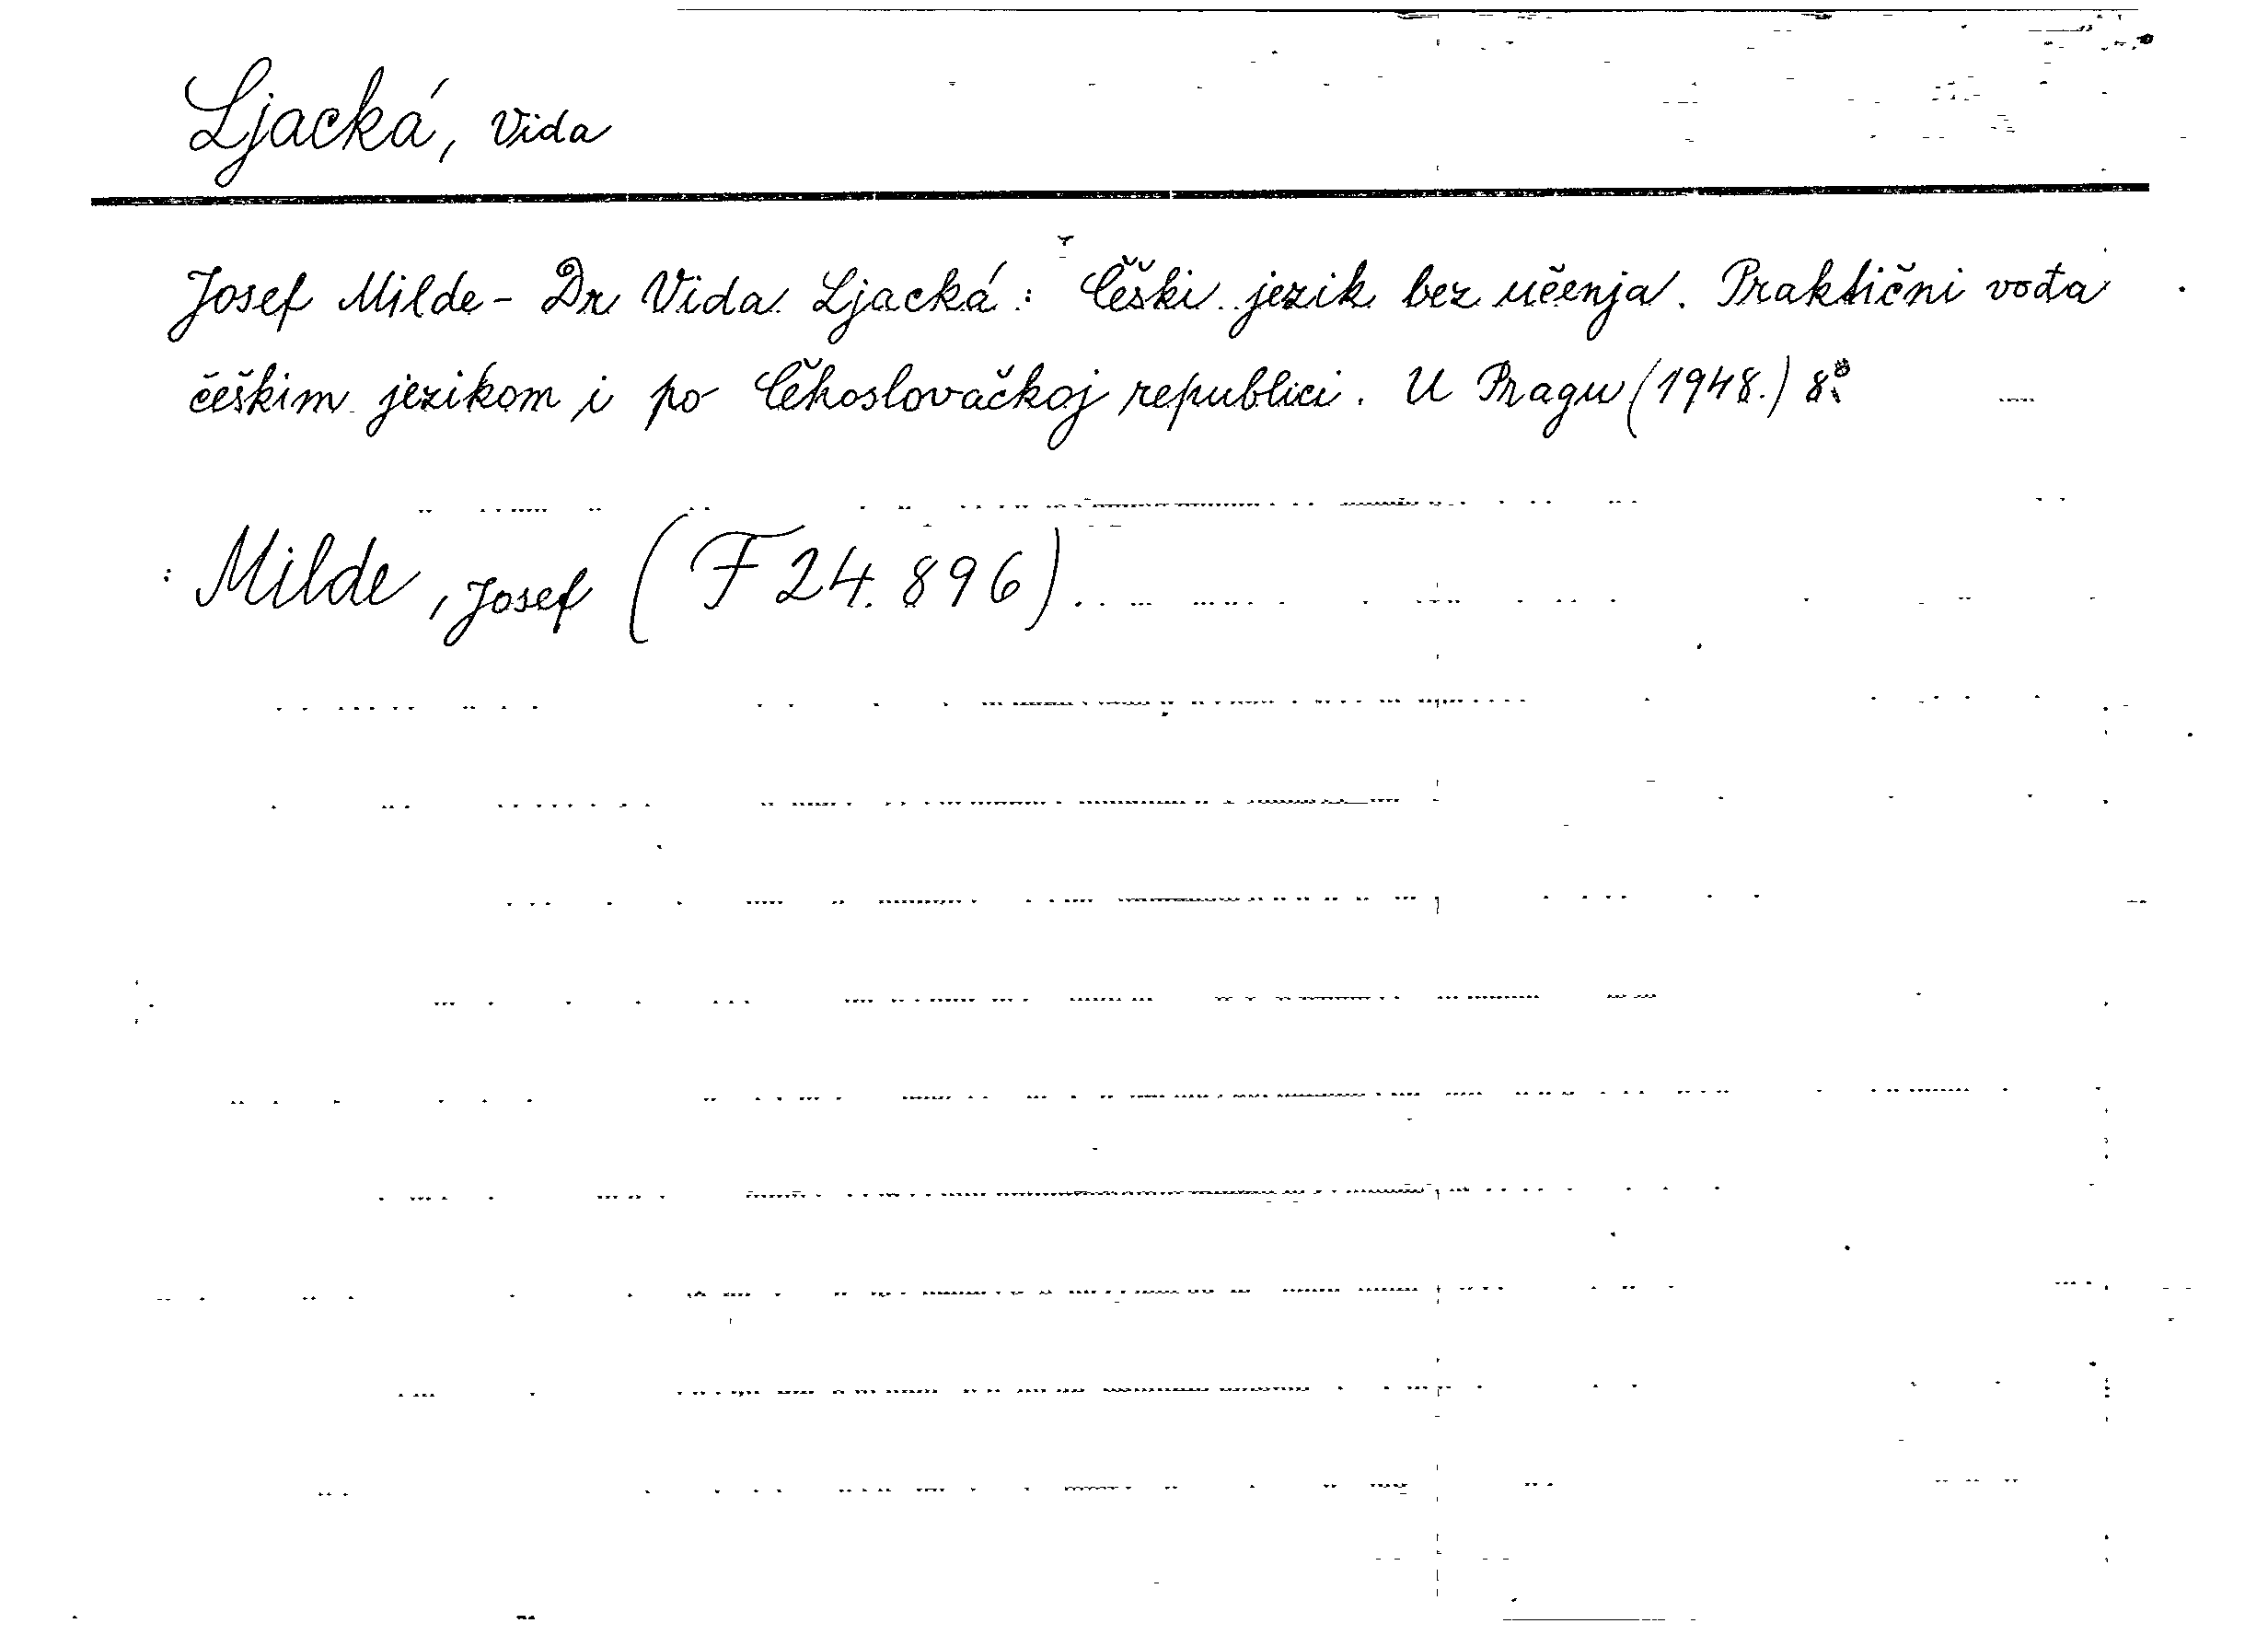 Ljacká, Vida
Josef Milde - Dr Vida Ljacká: Češki jezik bez učenja. Praktični vođa
češkim jezikom i po Čehoslovačkoj republici. U Pragu (1948.) 8°.
Milde, Josef (F 24.896)